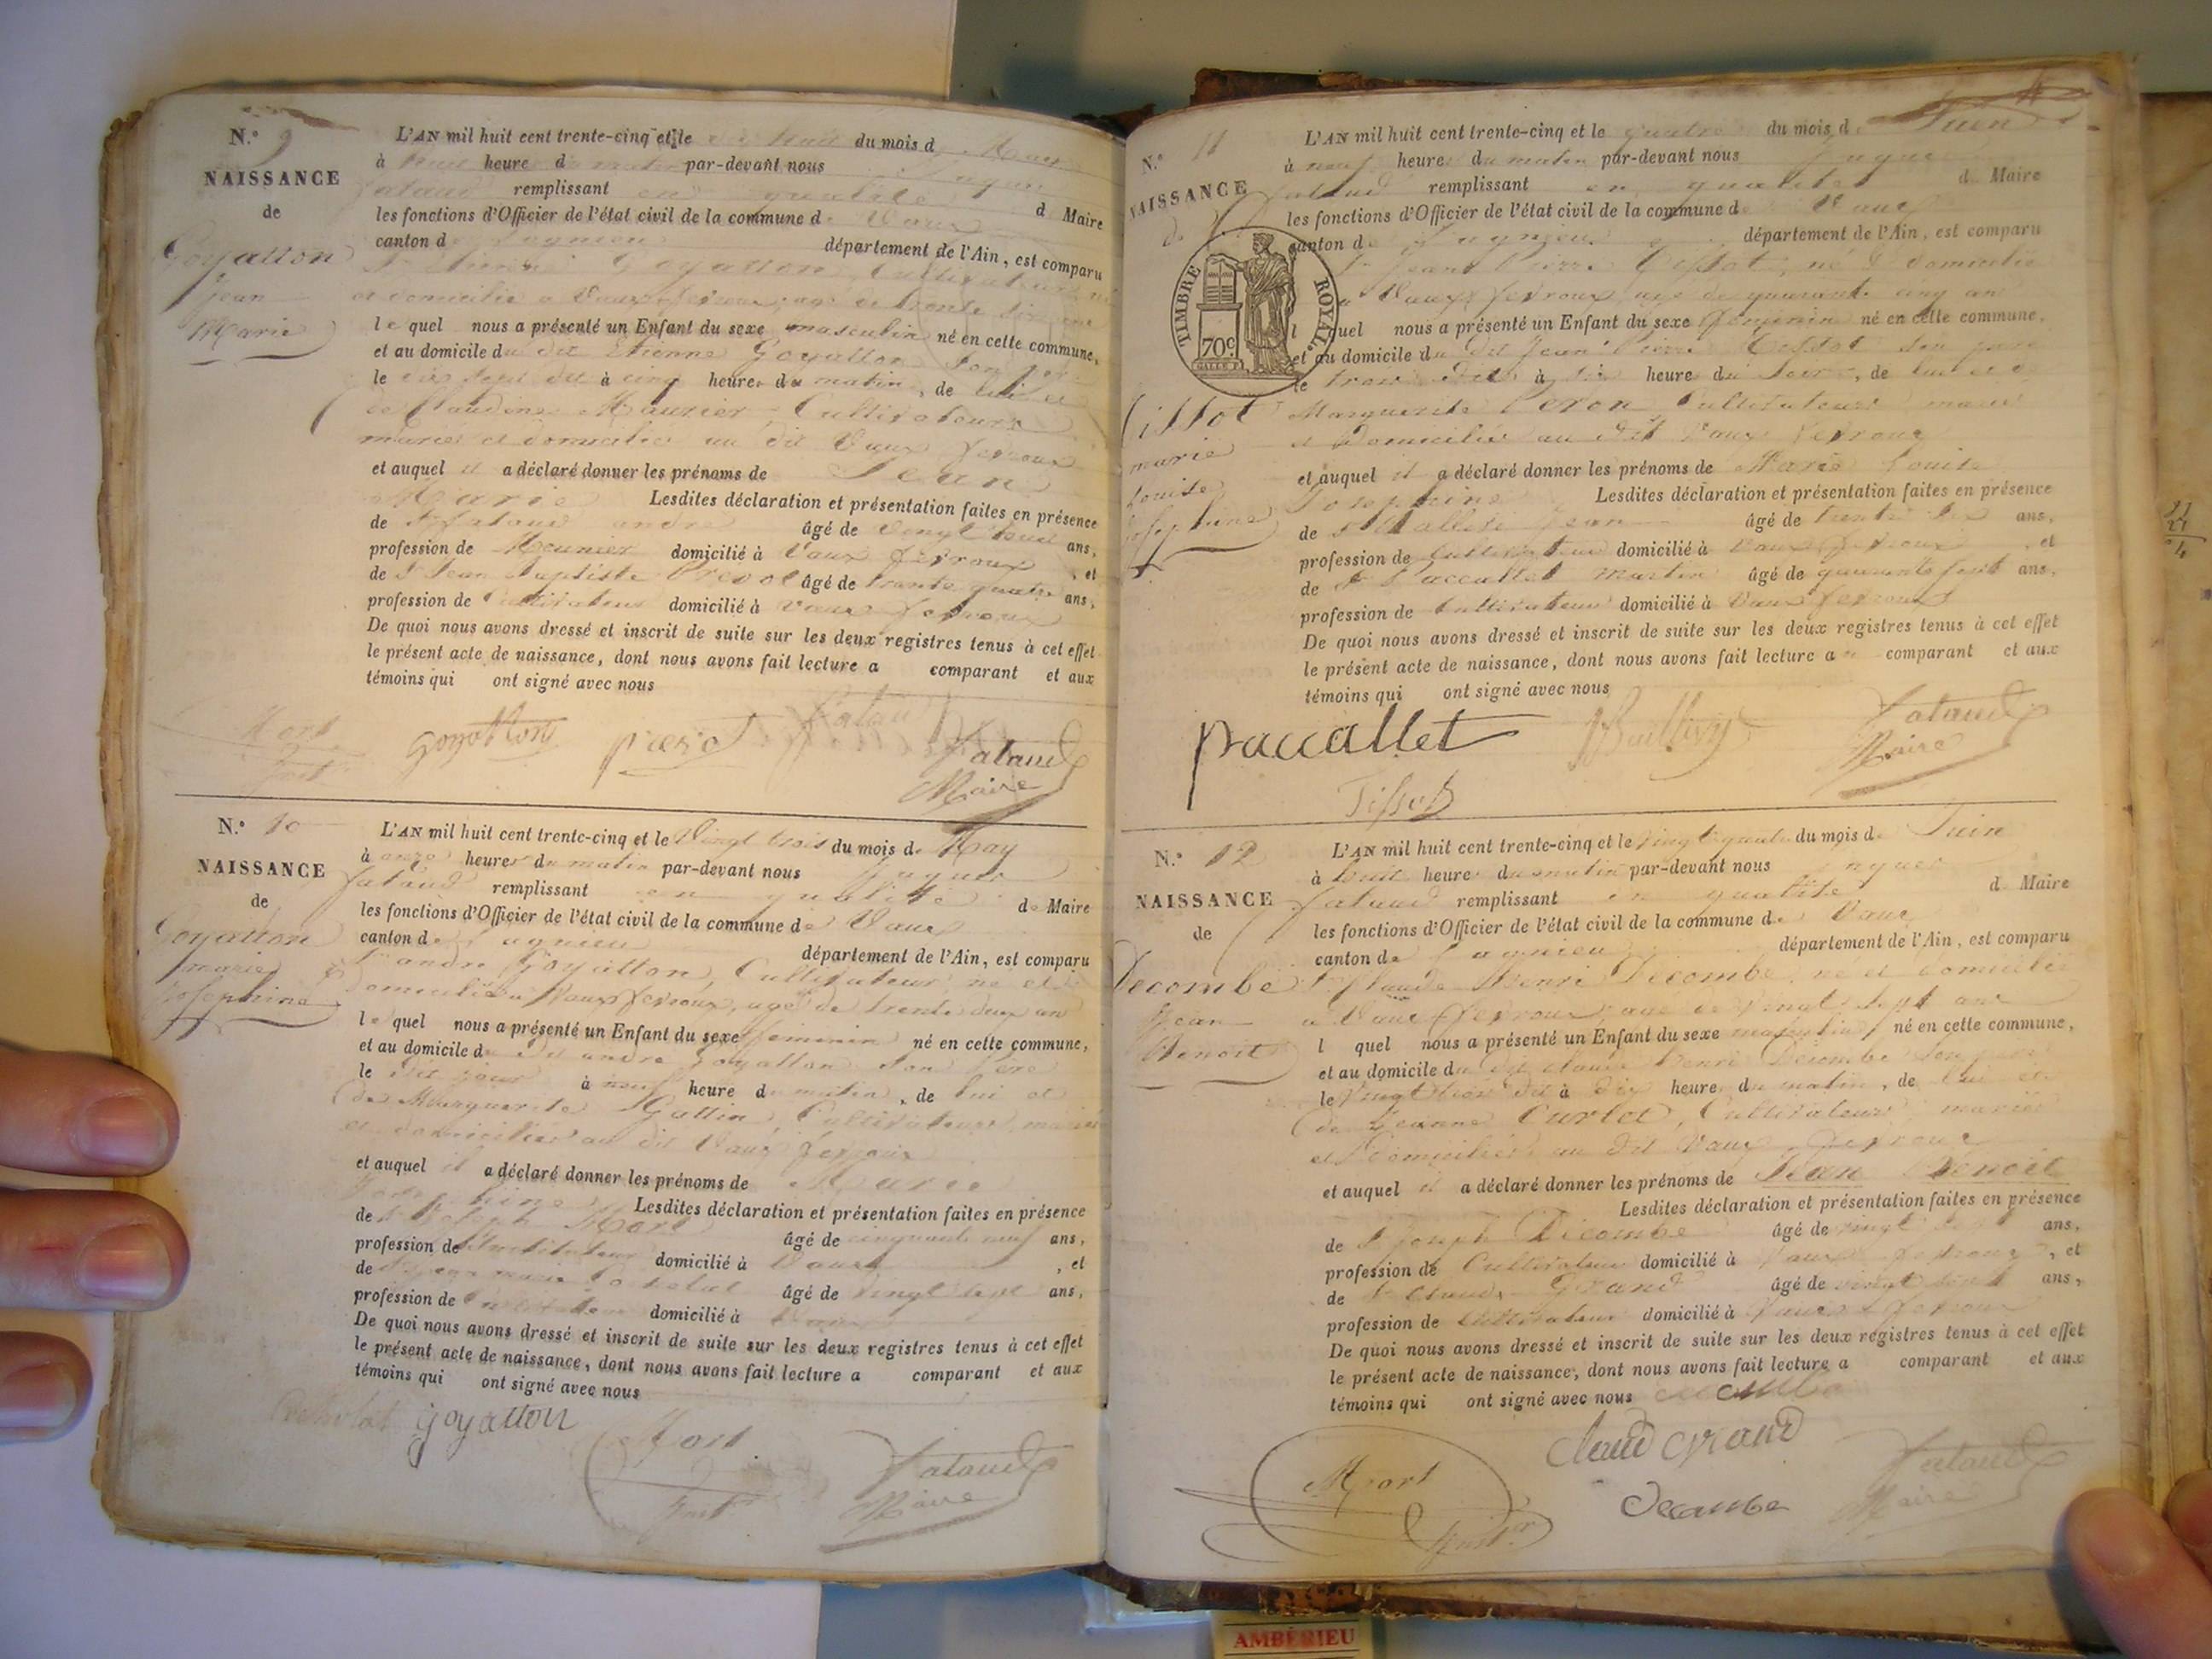 N.° 9
NAISSANCE
de
Goyatton
Jean
Marie
L'AN mil huit cent trente-cinq et le dix huit du mois d May
à huit heure d matin par-devant nous
fataud remplissant en qualité d Maire
les fonctions d'Officier de l'état civil de la commune de Vaux
canton d Lagnieu département de l'Ain, est comparu
Etienne Goyatton, Cultivateur
et domicilié a Vaux fevroux, agé de trente
le quel nous a présenté un Enfant du sexe masculin né en cette commune,
et au domicile du dit Etienne Goyatton son
le dix sept dit à cinq heures du matin, de lui et
de Claudine Maurier Cultivateurs
mariés et domiciliés au dit Vaux fevroux
et auquel il a déclaré donner les prénoms de Jean
Marie Lesdites déclaration et présentation faites en présence
de Sr fataud andré âgé de Vingt huit ans,
profession de Meunier domicilié à Vaux fevroux, et
de Sr Jean Baptiste Prevot âgé de trente quatre ans,
profession de Cultivateur domicilié à Vaux fevroux
De quoi nous avons dressé et inscrit de suite sur les deux registres tenus à cet effet
le présent acte de naissance, dont nous avons fait lecture a comparant et aux
témoins qui ont signé avec nous
Mort
goyatton
prevot
fataud
fataud
Maire
N.° 10
NAISSANCE
de
Goyatton
marie
Josephine
L'AN mil huit cent trente-cinq et le Vingt trois du mois de May
à onze heures du matin par-devant nous
fataud remplissant en qualité de Maire
les fonctions d'Officier de l'état civil de la commune de Vaux
canton de Lagnieu département de l'Ain, est comparu
Sr andré Goyatton, Cultivateur né et
domicilié a Vaux fevroux, agé de trente deux an
le quel nous a présenté un Enfant du sexe feminin né en cette commune,
et au domicile du dit andré Goyatton son Pere
le dit jour à neuf heure d matin, de lui et
de Marguerite Gallin, Cultivateurs mariés
et domiciliés au dit Vaux fevroux
et auquel il a déclaré donner les prénoms de Marie
Josephine Lesdites déclaration et présentation faites en présence
de Sr Joseph Mort âgé de cinquante neuf ans,
profession de Instituteur domicilié à Vaux, et
de Sr Jean marie âgé de Vingt sept ans,
profession de Cultivateur domicilié à Vaux
De quoi nous avons dressé et inscrit de suite sur les deux registres tenus à cet effet
le présent acte de naissance, dont nous avons fait lecture a comparant et aux
témoins qui ont signé avec nous
goyatton
Mort
Instr
fataud
Maire
N.° 11
NAISSANCE
de
TIMBRE ROYAL
70c
Tissot
marie
Louise
Josephine
L'AN mil huit cent trente-cinq et le quatre du mois de Juin
à neuf heure du matin par-devant nous
fataud remplissant en qualité d Maire
les fonctions d'Officier de l'état civil de la commune d Vaux
canton de Lagnieu département de l'Ain, est comparu
Sr Jean Pierre Tissot, né & domicilié
a Vaux fevroux agé de quarante cinq an
l quel nous a présenté un Enfant du sexe feminin né en cette commune,
et au domicile du dit Jean Pierre Tissot son pere
le trois dit à six heure du soir, de lui et de
Marguerite Peron Cultivateurs mariés
et Domiciliés au dit Vaux fevroux
et auquel il a déclaré donner les prénoms de Marie Louise
Josephine Lesdites déclaration et présentation faites en présence
de Sr Jean âgé de trente six ans,
profession de Cultivateur domicilié à Vaux fevroux, et
de Sr Paccallet Martin âgé de quarante sept ans,
profession de Cultivateur domicilié à Vaux fevroux
De quoi nous avons dressé et inscrit de suite sur les deux registres tenus à cet effet
le présent acte de naissance, dont nous avons fait lecture a comparant et aux
témoins qui ont signé avec nous
paccallet
fataud
Maire
Tissot
N.° 12
NAISSANCE
de
Decombe
Jean
Benoit
L'AN mil huit cent trente-cinq et le Vingt quatre du mois de Juin
à huit heure du matin par-devant nous
fataud remplissant en qualité d Maire
les fonctions d'Officier de l'état civil de la commune de Vaux
canton de Lagnieu département de l'Ain, est comparu
Sr Claude Henri Decombe, né et domicilié
a Vaux fevroux agé de Vingt sept ans
l quel nous a présenté un Enfant du sexe masculin né en cette commune,
et au domicile du dit Claude henri Decombe son pere
le Vingt trois dit à dix heure du matin, de lui et
de Jeanne Curlet, Cultivateurs mariés
et Domiciliés au Dit Vaux fevroux
et auquel il a déclaré donner les prénoms de Jean Benoit
Lesdites déclaration et présentation faites en présence
de Sr Joseph Decombe âgé de vingt sept ans,
profession de Cultivateur domicilié à Vaux fevroux, et
de Sr Claude Grand âgé de vingt sept ans,
profession de Cultivateur domicilié à Vaux fevroux
De quoi nous avons dressé et inscrit de suite sur les deux registres tenus à cet effet
le présent acte de naissance, dont nous avons fait lecture a comparant et aux
témoins qui ont signé avec nous
claud grand
Mort
Instr
decombe
fataud
Maire
AMBÉRIEU